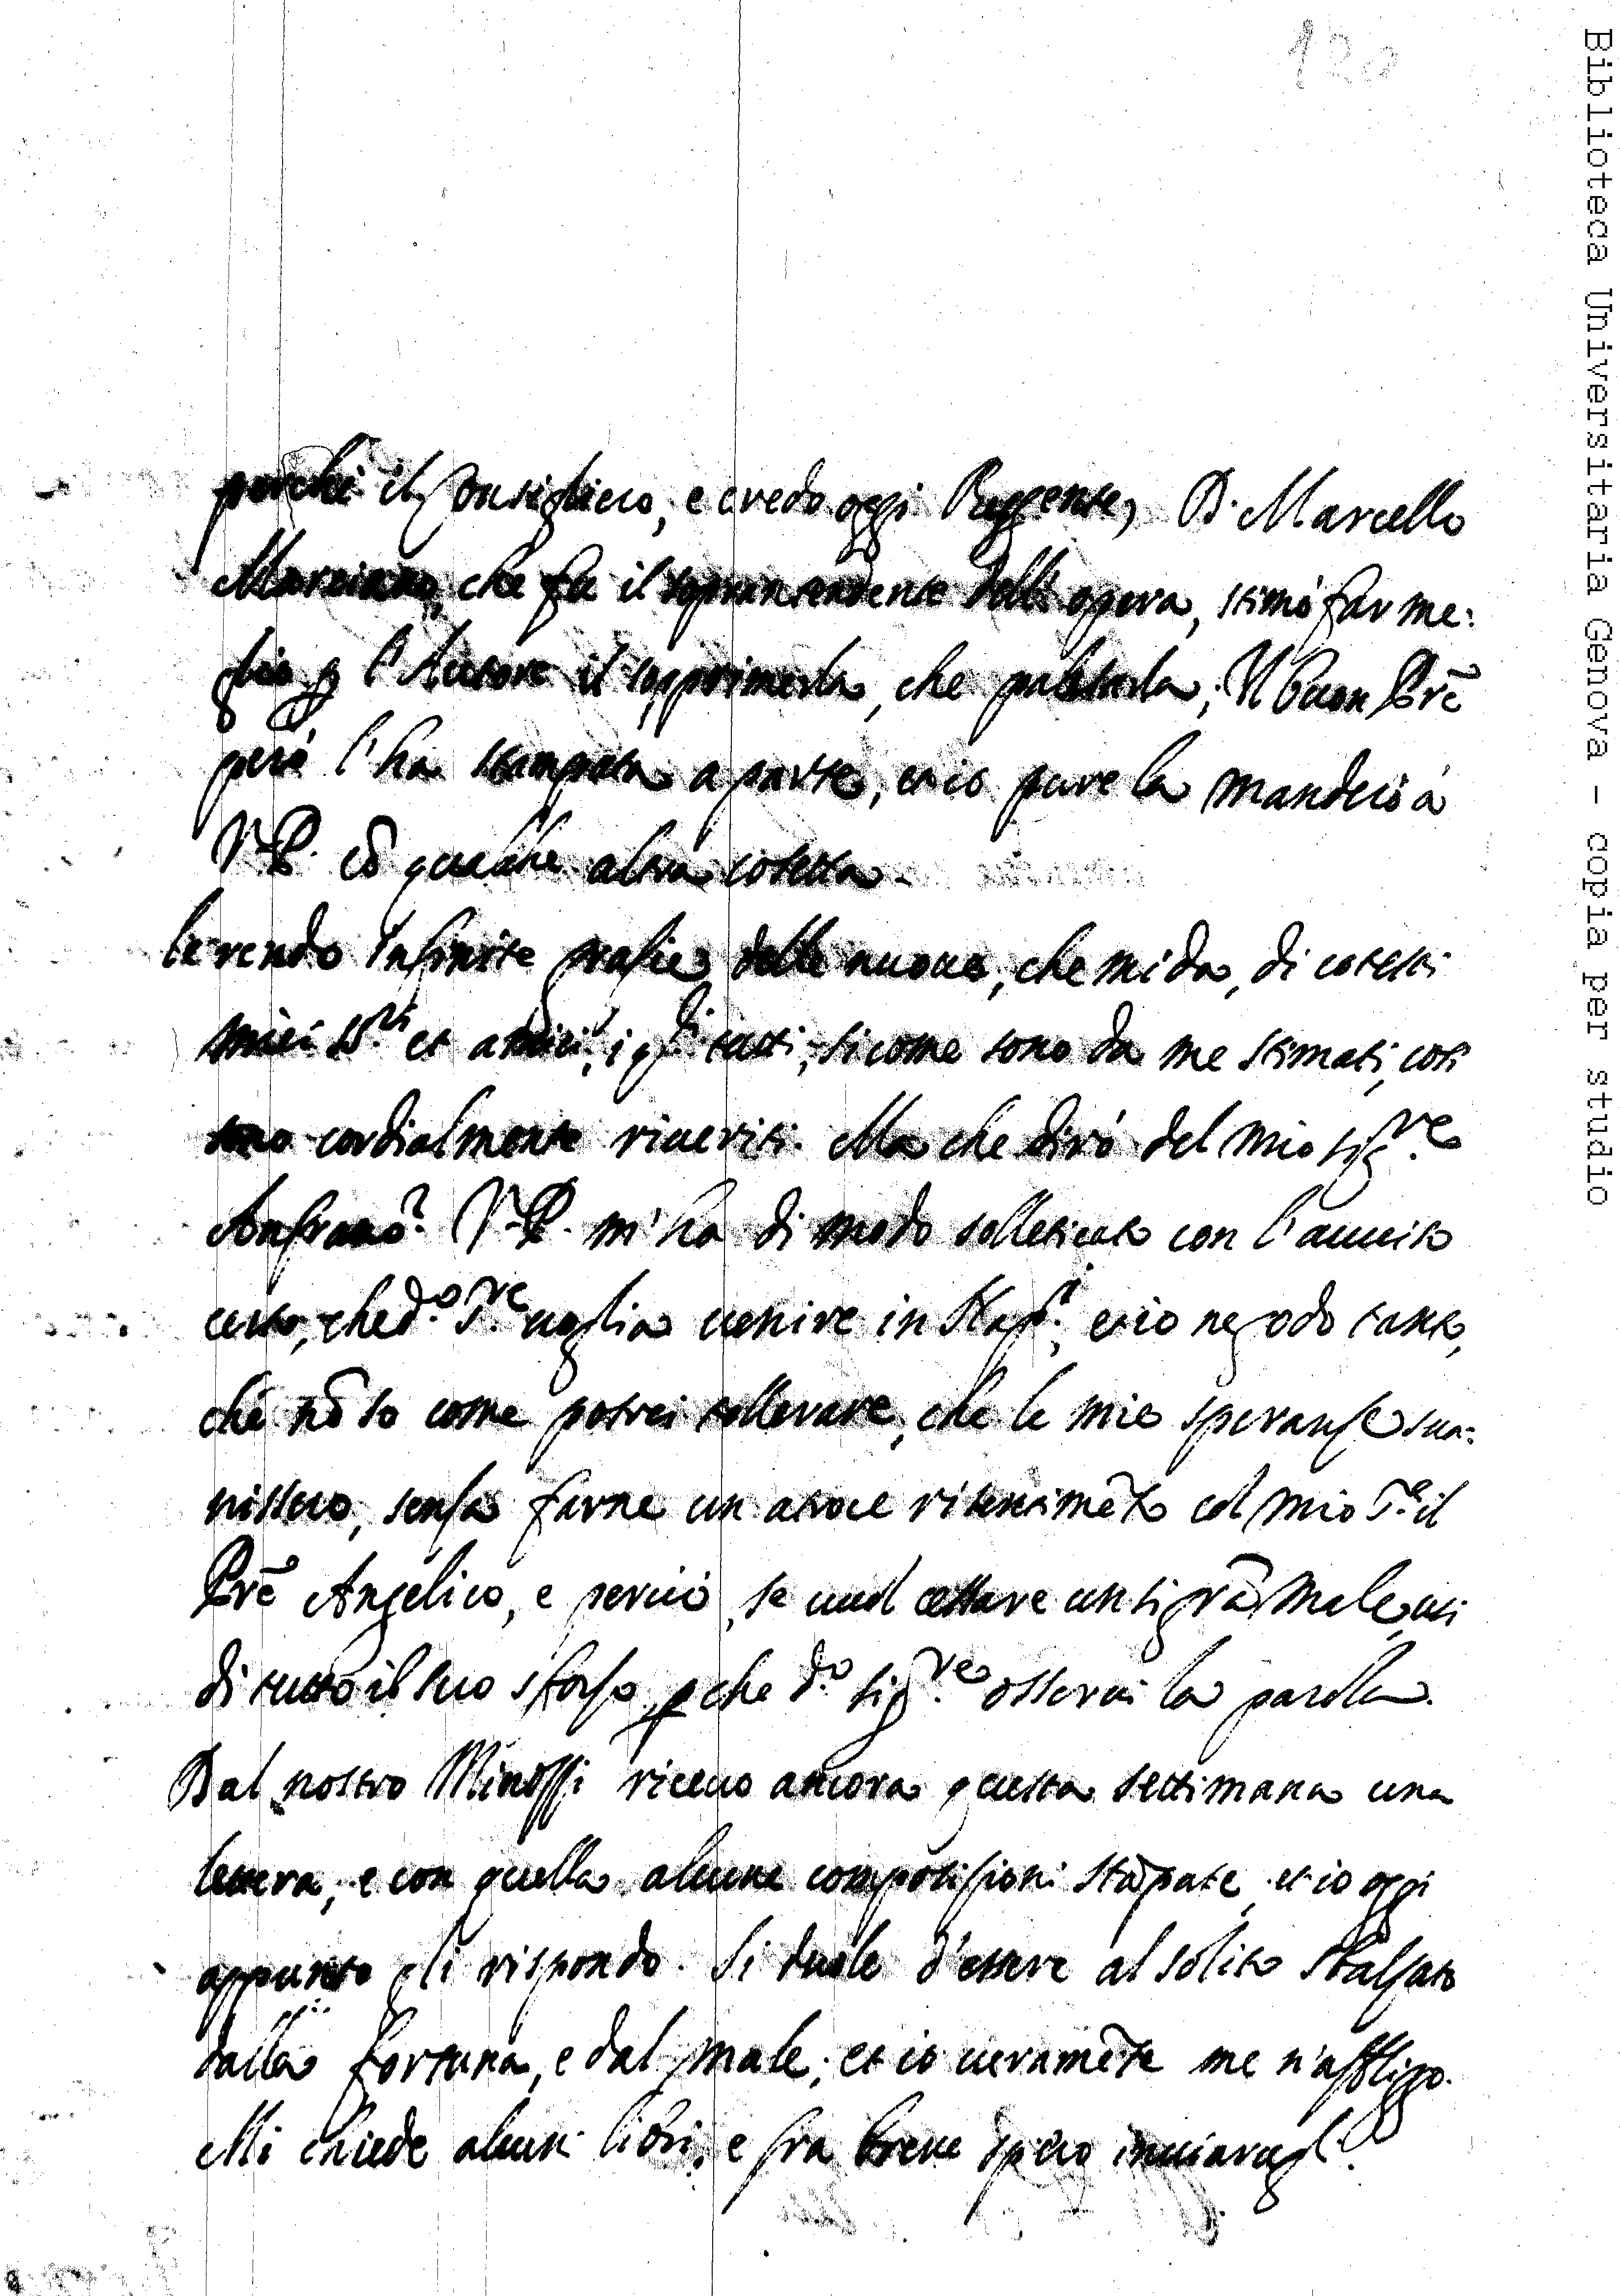 120
perche il Consigliero, e credo oggi Reggente, D. Marcello
Marciano, che fu il soprantendente dell'opera, stimò far me:
glio p l'Autore il sopprimerla, che palesarla; Il buon Prē
però l'ha stampata a parte, et io pure la manderò a
V.P. cō qualche altra cosetta.
le rendo infinite grasie delle nuoue, che mi da, di cotesti
miei SS.ri et amici, i q.li tutti, si come sono da me stimati, così
sono cordialmente riueriti. Ma che dirò del mio sig.re
Ansrano? V.P. m'ha di modo solleticato con l'auuiso
certo, che d.o S.re uoglia uenire in Nap.i, et io ne godo tanto,
che nō so come potrei tollerare, che le mie speranse sua:
nissero, sensa farne un atroce risentimēto col mio S.e il
Prē Angelico, e perciò, se uuol cessare un sì grā male, usi
di tutto il suo sforso, pche d.o sig.re osserui la parola.
Dal nostro Minossi riceuo ancora questa settimana una
lettera, e con quella alcune composisioni stāpate, et io oggi
appunto gli rispondo. Si duole d'essere al solito sbalsato
dalla fortuna, e dal male; et io ueramēte me n'affliggo.
Mi chiede alcuni libri, e fra breue spero inuiarugl.i
Biblioteca Universitaria Genova - copia per studio